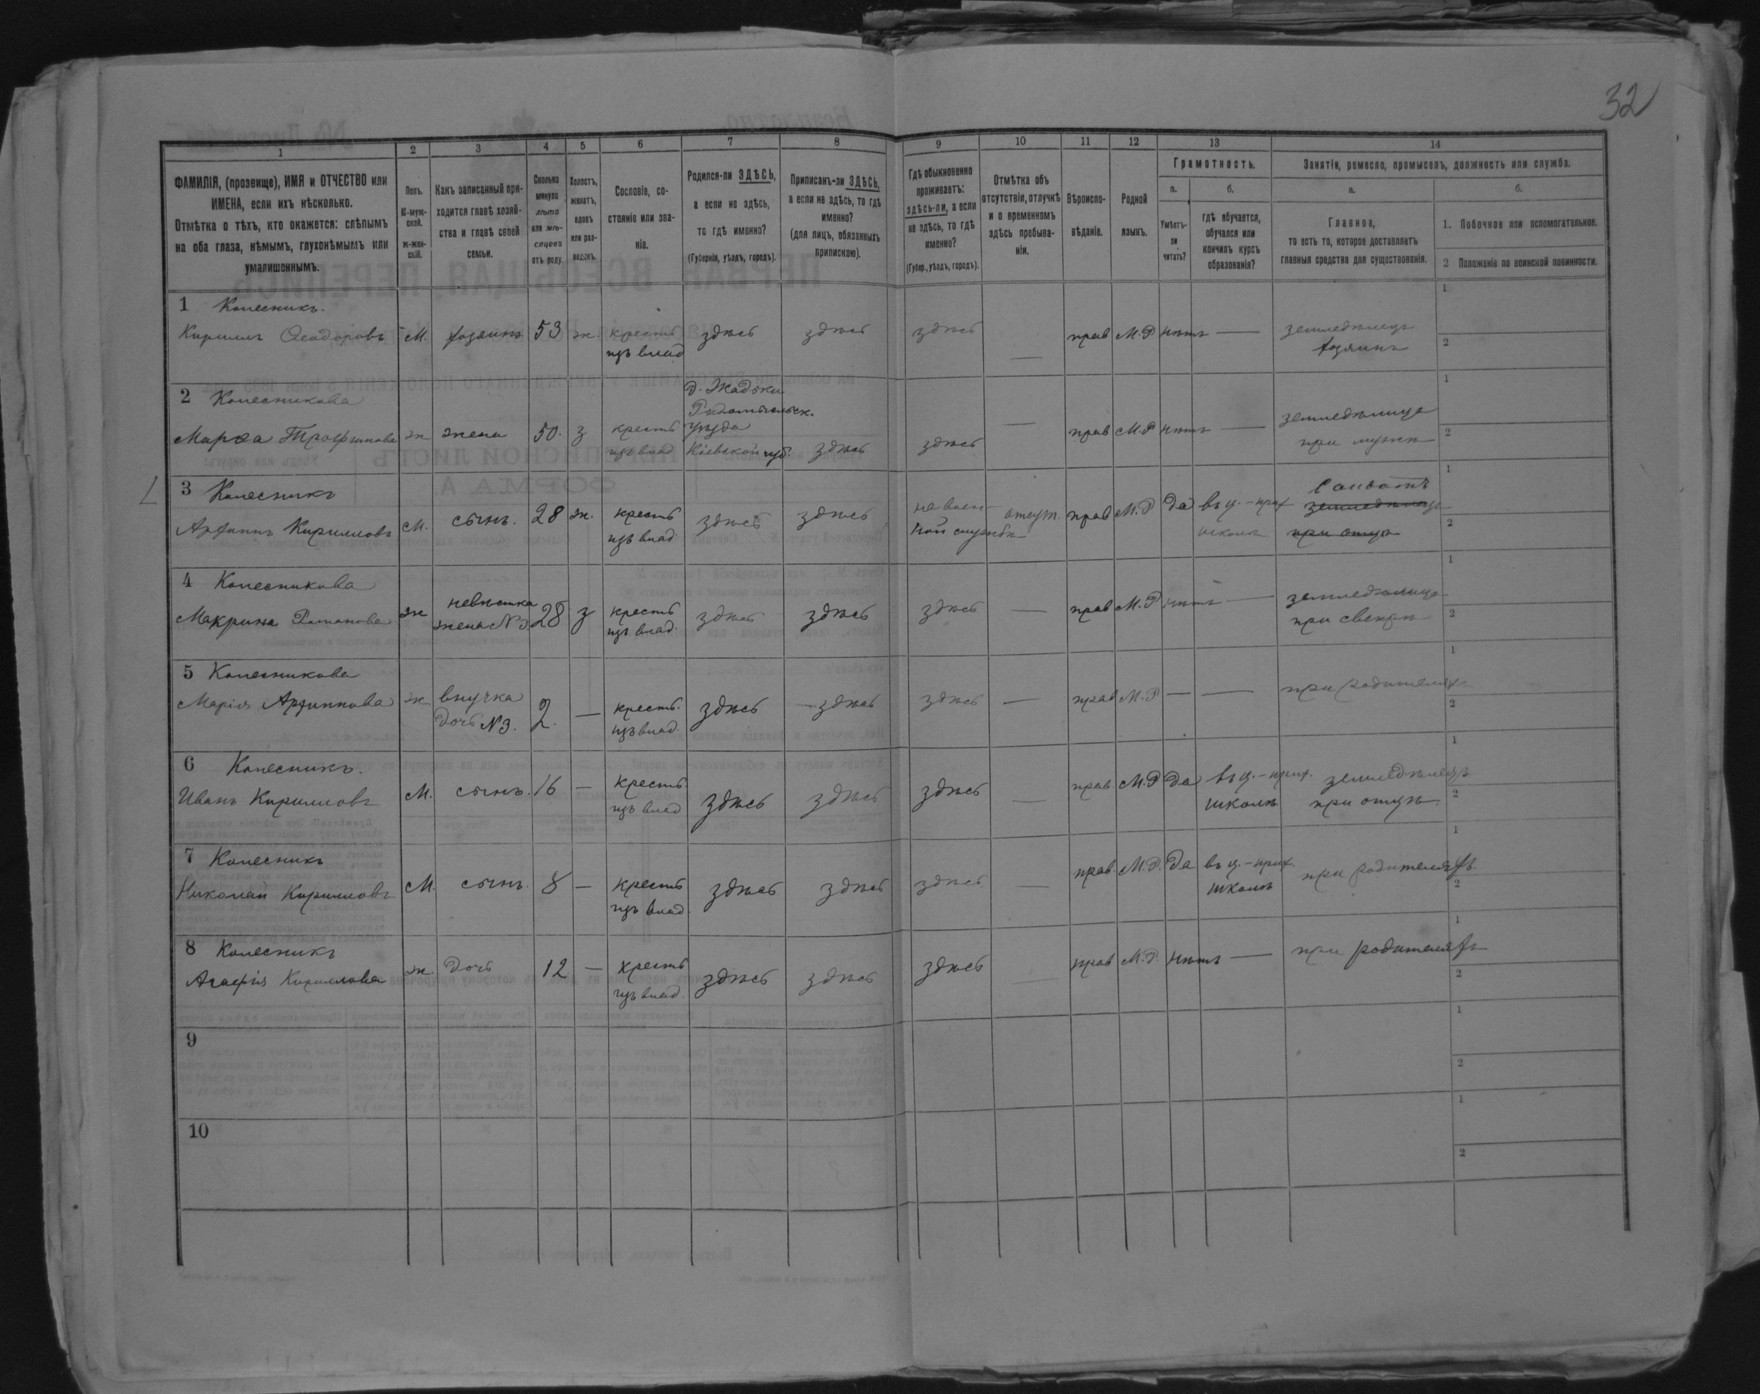 32
1 2 3 4 5 6 7 8 9 10 11 12 13 14
ФАМИЛІЯ, (прозвище), ИМЯ и ОТЧЕСТВО или
ИМЕНА, если ихъ нѣсколько.
Отмѣтка о тѣхъ, кто окажется: слѣпымъ
на оба глаза, нѣмымъ, глухонѣмымъ или
умалишоннымъ.
Полъ.
М-муж-
ской.
Ж-жен-
скій.
Какъ записанный при-
ходится главѣ хозяй-
ства и главѣ своей
семьи.
Сколько
минуло
лѣтъ
или мѣ-
сяцевъ
отъ роду.
Холостъ,
женатъ,
вдовъ
или раз-
веденъ.
Сословіе, со-
стояніе или зва-
ніе.
Родился-ли ЗДѢСЬ,
а если не здѣсь,
то гдѣ именно?
(Губернія, уѣздъ, городъ).
Приписанъ-ли ЗДѢСЬ,
а если не здѣсь, то гдѣ
именно?
(для лицъ, обязанныхъ
припискою).
Гдѣ обыкновенно
проживаетъ:
здѣсь-ли, а если
не здѣсь, то гдѣ
именно?
(Губер., уѣздъ, городъ).
Отмѣтка объ
отсутствіи, отлучкѣ
и о временномъ
здѣсь пребыва-
ніи.
Вѣроиспо-
вѣданіе.
Родной
языкъ.
Грамотность.
а.
Умѣетъ-
ли
читать?
б.
гдѣ обучается,
обучался или
кончилъ курсъ
образованія?
Занятіе, ремесло, промыселъ, должность или служба.
а.
Главное,
то есть то, которое доставляетъ
главныя средства для существованія.
б.
1. Побочное или вспомогательное.
2 Положеніе по воинской повинности.
1 Колесникъ.
Кириллъ Ѳеодоровъ М. хозяинъ 53 ж. крестъ здѣсь здѣсь здѣсь — прав М.Р нѣтъ — земледѣлецъ
изъ влад хозяинъ
2 Колесникова
Марѳа Трофимова ж жена 50. з крестъ
изъ влад
уѣзда
Кіевской губ. здѣсь здѣсь — прав М.Р нѣтъ — земледѣлица
при мужѣ
3 Колесникъ
Архипъ Кирилловъ М. сынъ. 28 ж. крестъ
изъ влад здѣсь здѣсь на воен
ной службѣ отсут. прав М.Р да въ ц.-прих
школѣ Солдатъ
земледѣлецъ
при отцѣ
4 Колесникова
Макрина Романова ж невѣстка
жена №3 28 з крестъ
изъ влад здѣсь здѣсь здѣсь — прав М.Р нѣтъ — земледѣлица
при свекрѣ
5 Колесникова
Марія Архиппова ж внучка
дочь №3. 2. — крестъ.
изъ влад. здѣсь здѣсь здѣсь — прав М.Р — — при родителяхъ
6 Колесникъ.
Иванъ Кирилловъ М. сынъ. 16 — крестъ
изъ влад здѣсь здѣсь здѣсь — прав М.Р да въ ц.-прих.
школѣ земледѣлецъ
при отцѣ
7 Колесникъ
Николай Кирилловъ М. сынъ. 8 — крестъ
изъ влад. здѣсь здѣсь здѣсь — прав. М.Р. да въ ц.-прих.
школѣ при родителяхъ
8 Колесникъ
Агафія Кириллова ж дочь 12 — крестъ
изъ влад. здѣсь здѣсь здѣсь — прав М.Р. нѣтъ — при родителяхъ
9
10